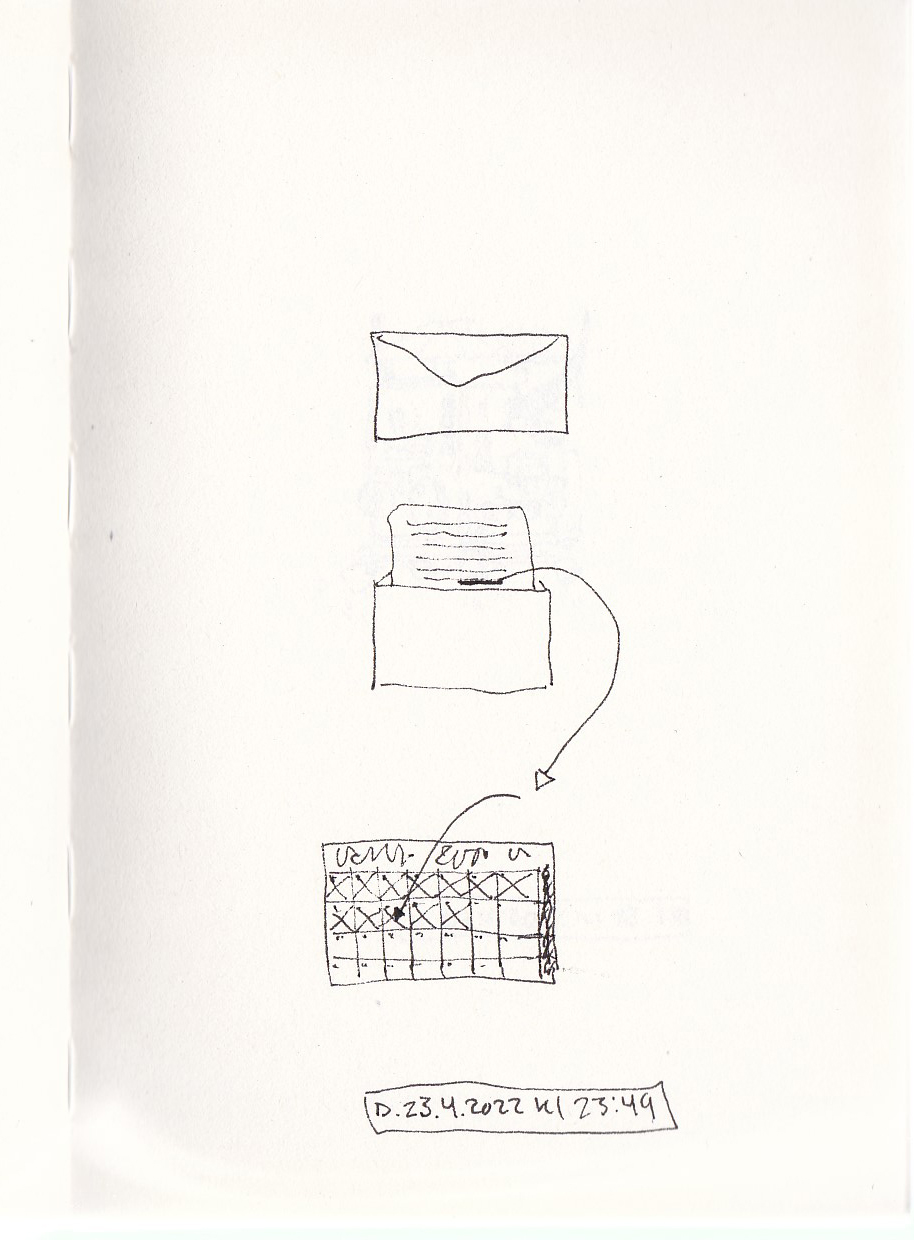 D. 23.4.2022 kl 23:49